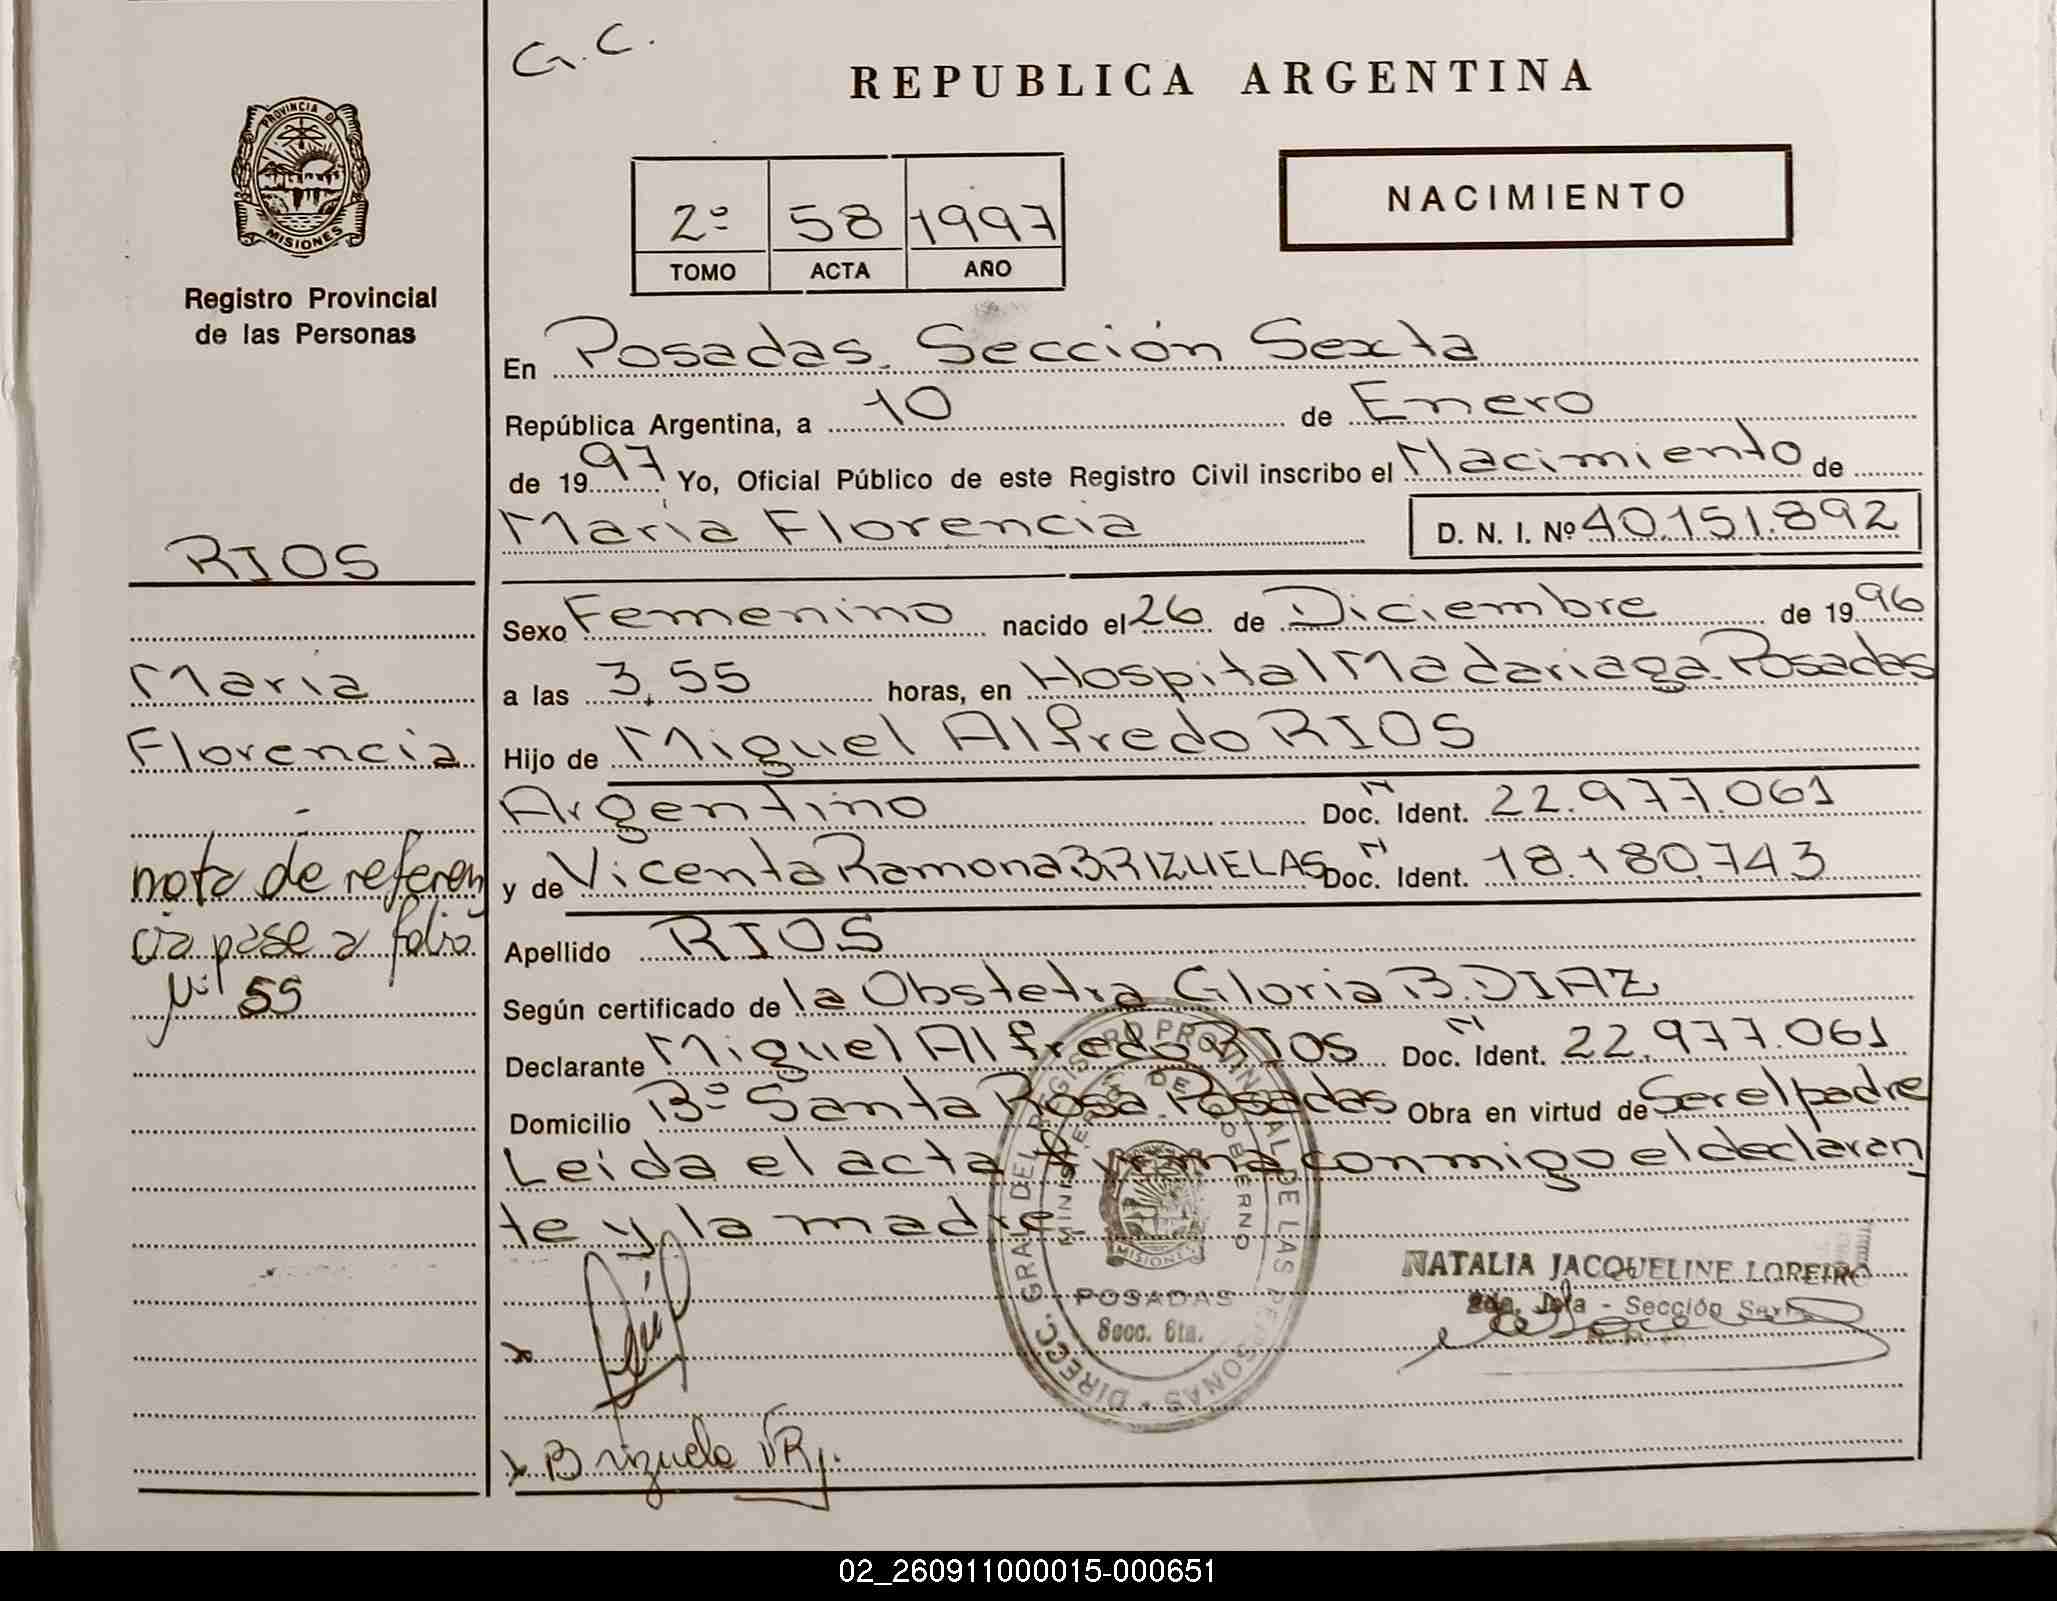 G. C.
REPUBLICA ARGENTINA
PROVINCIA DE
MISIONES
Registro Provincial
de las Personas
2º 58 1997
TOMO ACTA AÑO
NACIMIENTO
En Posadas. Sección Sexta
República Argentina, a 10 de Enero
de 1997 Yo, Oficial Público de este Registro Civil inscribo el Nacimiento de
María Florencia D. N. I. Nº 40.151.892
RIOS
María
Florencia
nota de referen
cia pase a folio
Nº 55
Sexo Femenino nacido el 26 de Diciembre de 1996
a las 3,55 horas, en Hospital Madariaga. Posadas
Hijo de Miguel Alfredo RIOS
Argentino Doc. N Ident. 22.977.061
y de Vicenta Ramona BRIZUELAS Doc. N Ident. 18.180.743
Apellido RIOS
Según certificado de la Obstetra Gloria B. DIAZ
Declarante Miguel Alfredo RIOS Doc. N Ident. 22.977.061
Domicilio Bº Santa Rosa. Posadas Obra en virtud de Ser el padre
Leída el acta firma conmigo el declaran
te y la madre
DIRECC. GRAL DEL REGISTRO PROVINCIAL DE LAS PERSONAS
MINISTERIO DE GOBIERNO
MISIONES
POSADAS
Secc. 6ta.
NATALIA JACQUELINE LOREIRO
2da. Jefa - Sección Sexta
Brizuela VR.
02_260911000015-000651